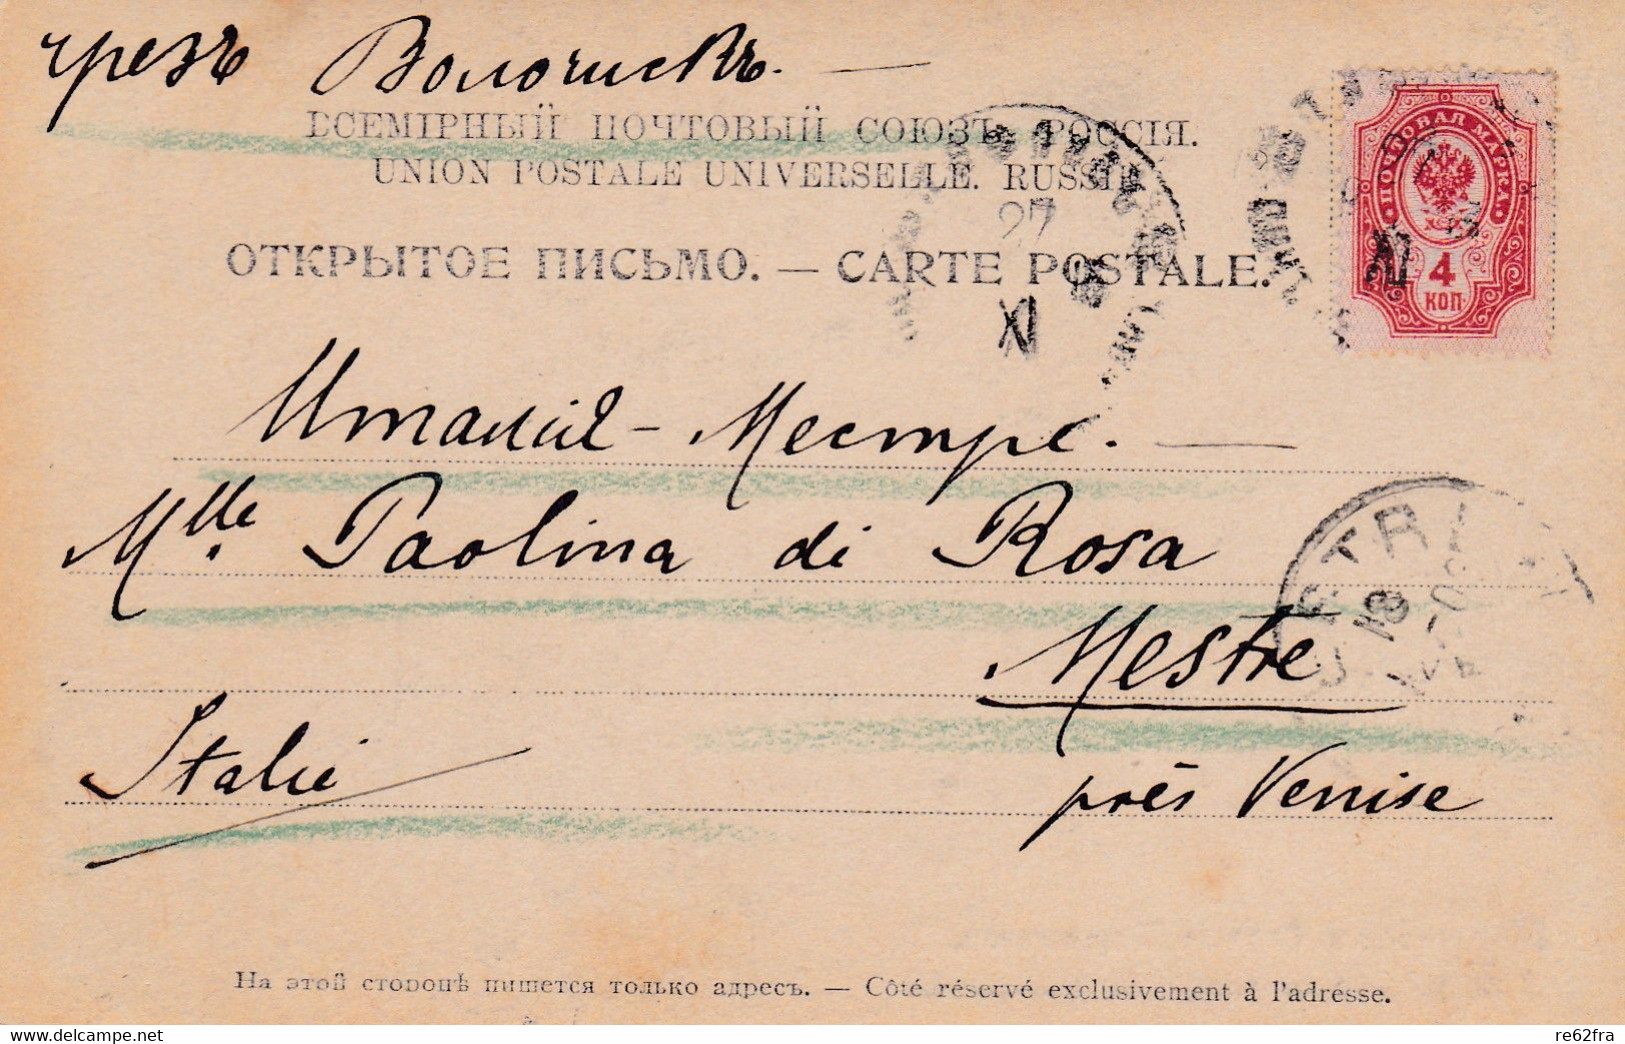 чрезъ Волочискъ. —
ВСЕМІРНЫЙ ПОЧТОВЫЙ СОЮЗЪ. РОССІЯ.
UNION POSTALE UNIVERSELLE. RUSSIE
ОТКРЫТОЕ ПИСЬМО. — CARTE POSTALE.
27
XI
ПОЧТОВАЯ МАРКА
4
КОП
Италія - Местре. —
Mlle Paolina di Rosa
Mestre
Italie
près Venise
На этой сторонѣ пишется только адресъ. — Côté réservé exclusivement à l'adresse.
www.delcampe.net
re62fra